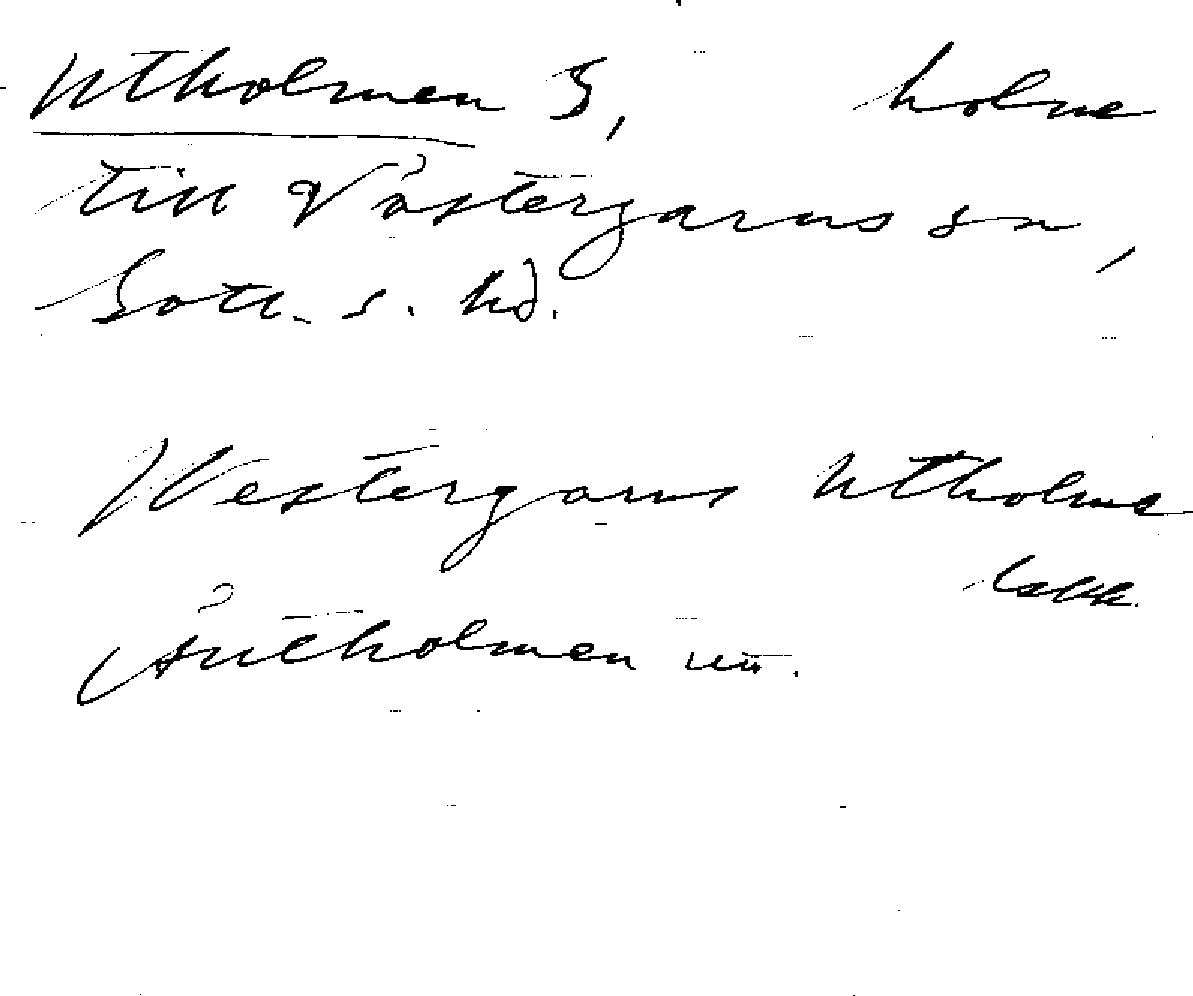 Utholmen 3, holme
till Västergarns sn,
Gotl. s. hd.
Westergarns Utholme
Autholmen